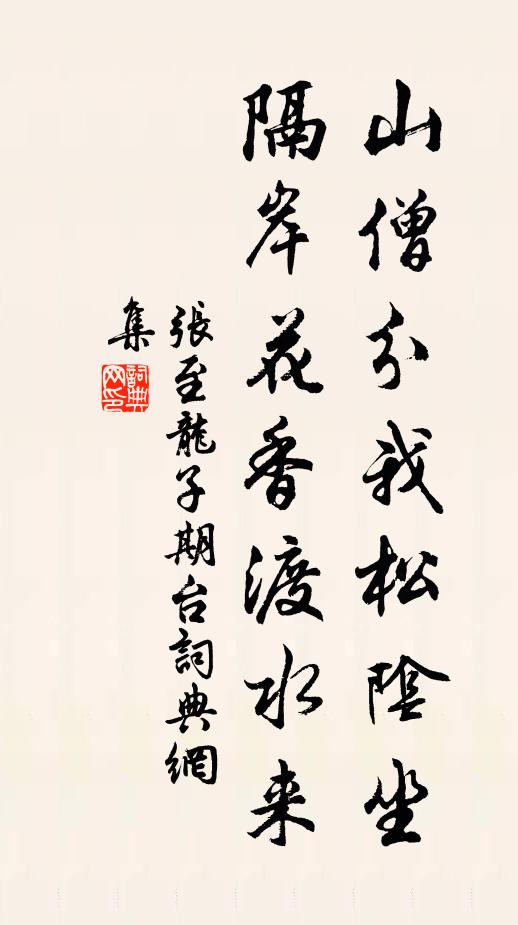 山僧分我松陰坐
隔岸花香渡水来
張至龍子期台詞典網
集
詞典網印